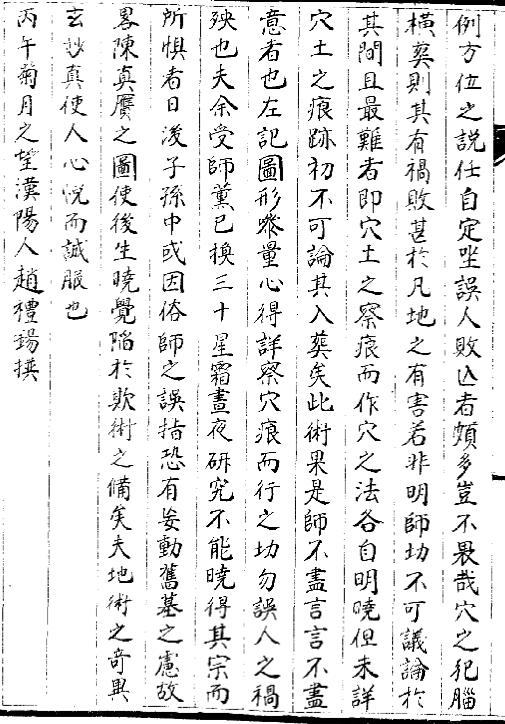 例方位之說任自定坐誤人敗亡者頗多豈不畏哉穴之犯腦
橫奕則其有禍敗甚於凡地之有害若非明師切不可議論於
其間且最難者即穴土之察痕而作穴之法各自明曉但未詳
穴土之痕跡初不可論其入葬矣此術果是師不盡言言不盡
意者也左記圖形叅量心得詳察穴痕而行之切勿誤人之禍
殃也夫余受師薰已換三十星霜晝夜硏究不能曉得其宗而
所惧者日後子孫中或因俗師之誤指恐有妄動舊墓之慮故
畧陳眞贋之圖使後生曉覺陷於欺術之備矣夫地術之奇異
玄妙眞使人心悅而誠服也
丙午菊月之望漢陽人趙禮錫撰